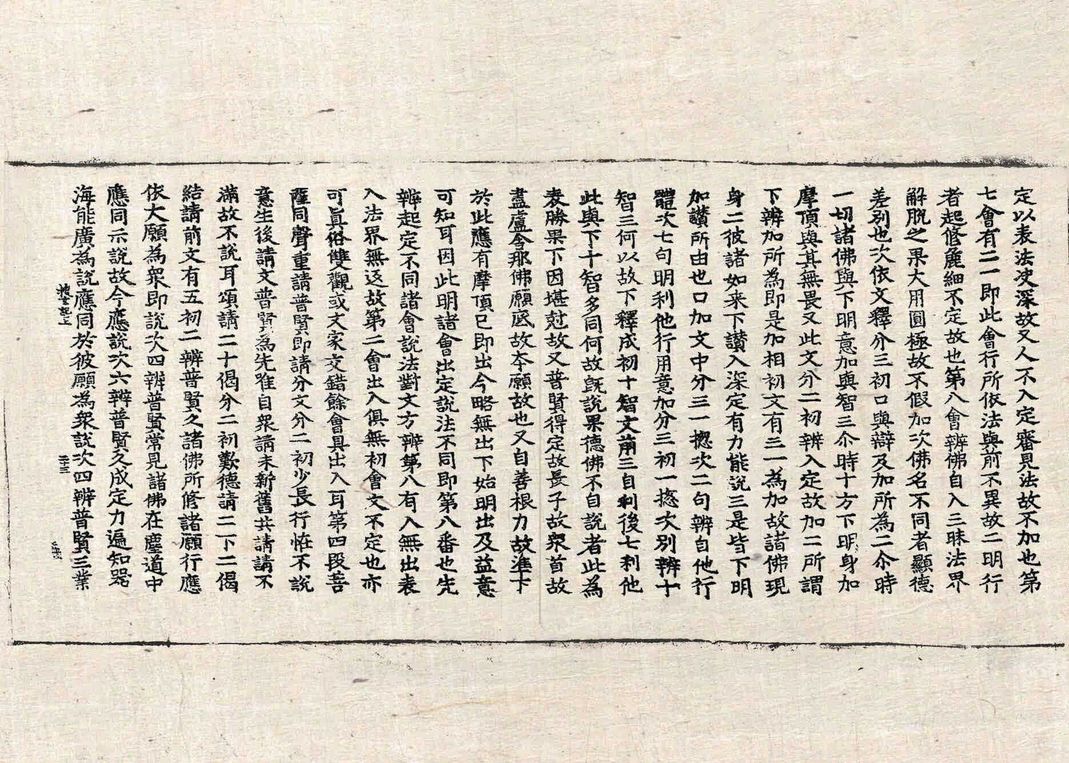 定以表法深故又人不入定審見法故不加也第
七會有二一即此會行所依法與前不異故二明行
者起修麁細不定故也第八會辨佛自入三昧法界
解脫之果大用圓極故不假加次佛名不同者顯德
差別也次依文釋分三初口與辯及加所為二尒時
一切諸佛與下明意加與智三尒時十方下明身加
摩頂與其無畏又此文分二初辨入定故加二所謂
下辨加所為即是加相初文有三一為加故諸佛現
身二彼諸如来下讃入深定有力能說三是皆下明
加讃所由也口加文中分三一揔次二句辨自他行
體次七句明利他行用意加分三初一揔次別辨十
智三何以故下釋成初十智文前三自利後七利他
此與下十智多同何故旣說果德佛不自說者此為
表勝果下因堪尅故又普賢得定故長子故衆首故
盡盧舍那佛願底故本願故也又自善根力故准下
於此應有摩頂已即出今略無出下始明出及益意
可知耳因此明諸會出定說法不同即第八番也先
辨起定不同諸會說法對文方辨第八有入無出表
入法界無返故第二會出入俱無初會文不定也亦
可真俗雙觀或文家交錯餘會具出入耳第四段菩
薩同聲重請普賢即請分文分二初少長行恠不說
意生後請文普賢為先唯自衆請未新舊共請請不
滿故不說耳頌請二十偈分二初歎德請二下二偈
結請前文有五初二辨普賢久諸佛所修諸願行應
依大願為衆即說次四辨普賢常見諸佛在塵道中
應同示說故今應說次六辨普賢久成定力遍知器
海能廣為說應同於彼願為衆說次四辨普賢三業